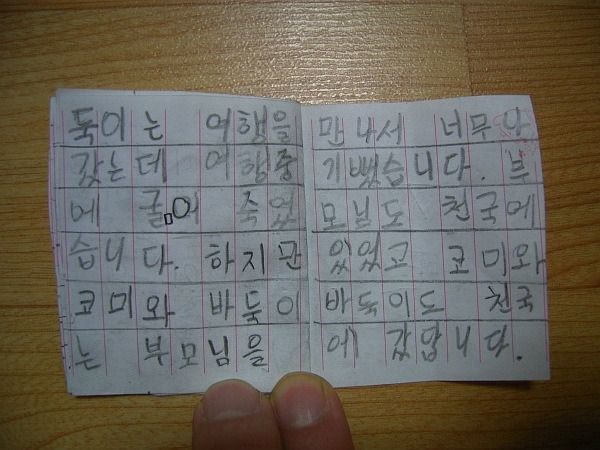 둑이는 여행을
갔는데 여행중
에 굶어 죽었
습니다. 하지만
코미와 바둑이
는 부모님을
만나서 너무나
기뻤습니다. 부
모님도 천국에
있었고 코미와
바둑이도 천국
에 갔답니다.